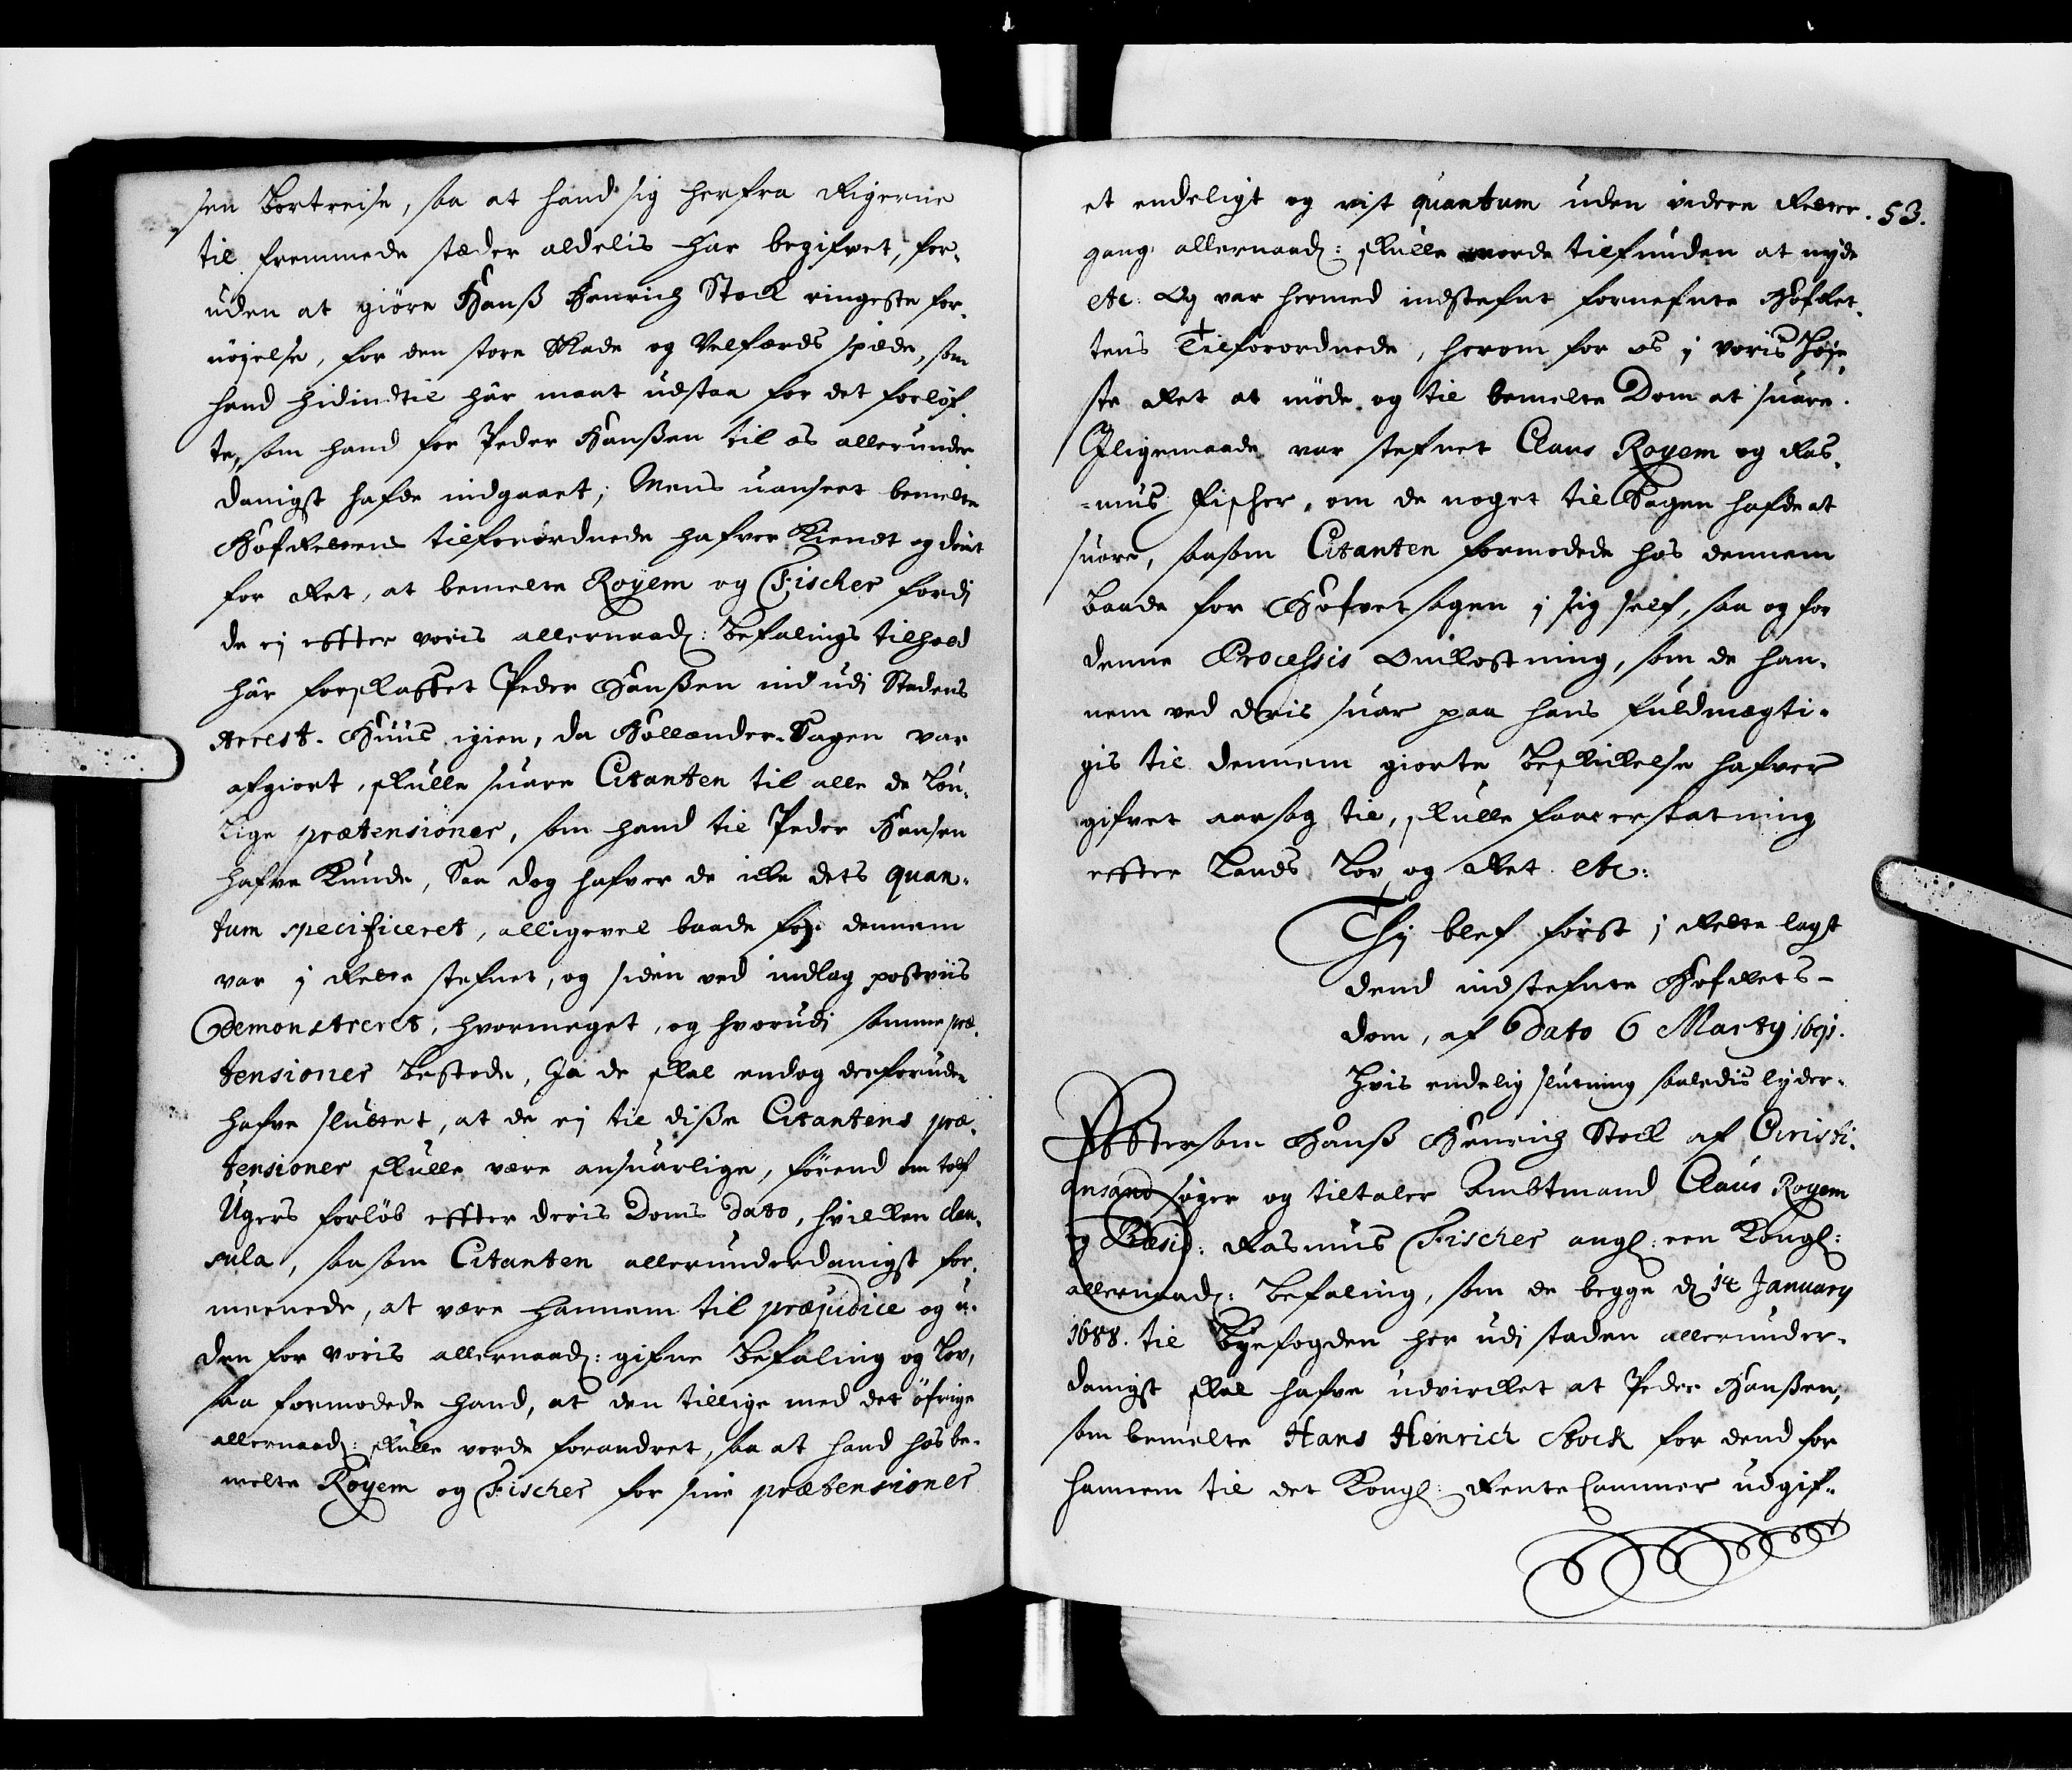 sen Bortreise, saa at hand sig herfra Rigerne
til fremmede stæder aldelis har begifvet, for-
uden at giøre Hanß Henrich Stock ringeste for-
nøjelse, for den store Skade og Velfærds spilde, som
hand hidindtil har maat udstaa for det forløf-
te, som hand for Peder Hanßen til os allerunder-
danigst hafde indgaaet; Mens uanseet bemelte
HofRettens tilforordnede hafver Kiendt og dømt
for Ret, at bemelte Royem og Fischer fordi
de ej effter voris allernaad: Befalings tilhold
har forskaffet Peder Hanßen ind udi Stadens
Arrest-Huus igien, da Hollænder-Sagen var
afgiort, skulle svare Citanten til alle de Lov-
lige prætensioner, som hand til Peder Hansen
hafve Kunde, Saa dog hafver de icke dets quan-
tum specificeret, alligevel baade for dennem
var j Rette stefnet, og siden ved indlag postviis
demonstreret, hvormeget, og hvorudi samme præ-
tensioner Bestode, Ja de skal endog desforuden
hafve sluttet, at de ej til disse Citantens præ-
tensioner skulle være ansvarlige, førend om tolf
Ugers forløb effter deris Doms Dato, hvilken clau-
sula, saasom Citanten allerunderdanigst for-
meenede, at være hannem til præjudice og u-
den for voris allernaad: gifne Befaling og Lov,
saa formodede hand, at den tillige med det øfrige
allernaad: skulle vorde forandret, saa at hand hos be-
melte Royem og Fischer for sine prætensioner
53.
et endeligt og vist quantum uden videre Retter-
gang allernaad: skulle vorde tilfunden at nyde
etc: Og var hermed indstefnt fornefnte HofRet-
tens Tilforordnede, herom for os j voris Høje-
ste Ret at møde og til bemelte Dom at svare.
Iligemaade var stefnet Claus Royem og Ras-
mus Fischer, om de noget til Sagen hafde at
svare, saasom Citanten formodede hos dennem
baade for Hofvetsagen j sig self, saa og for
denne Processis Omkostning, som de han-
nem ved deris svar paa hans fuldmægti-
gis til dennem giorte Beskickelse hafver
gifvet aarsag til, skulle faae erstatning
effter Lands Lov og Ret etc:
Thj blef først j Rette lagt
dend indstefnte HofRets-
dom, af Dato 6 Martij 1691.
Hvis endelig slutning saaledis lyder.
Efftersom Hanß Henrich Stock af Christi-
ansand søger og tiltaler Ambtmand Claus Royem
og Præsid: Rasmus Fischer angl: een Kongl:
allernaad: Befaling, som de begge d 14 January
1688. til Byefogden her udi staden allerunder-
danigst skal hafve udvircket at Peder Hanßen,
som bemelte Hans Henrich Stock for dend for
hannem til det Kongl: RenteCammer udgif-